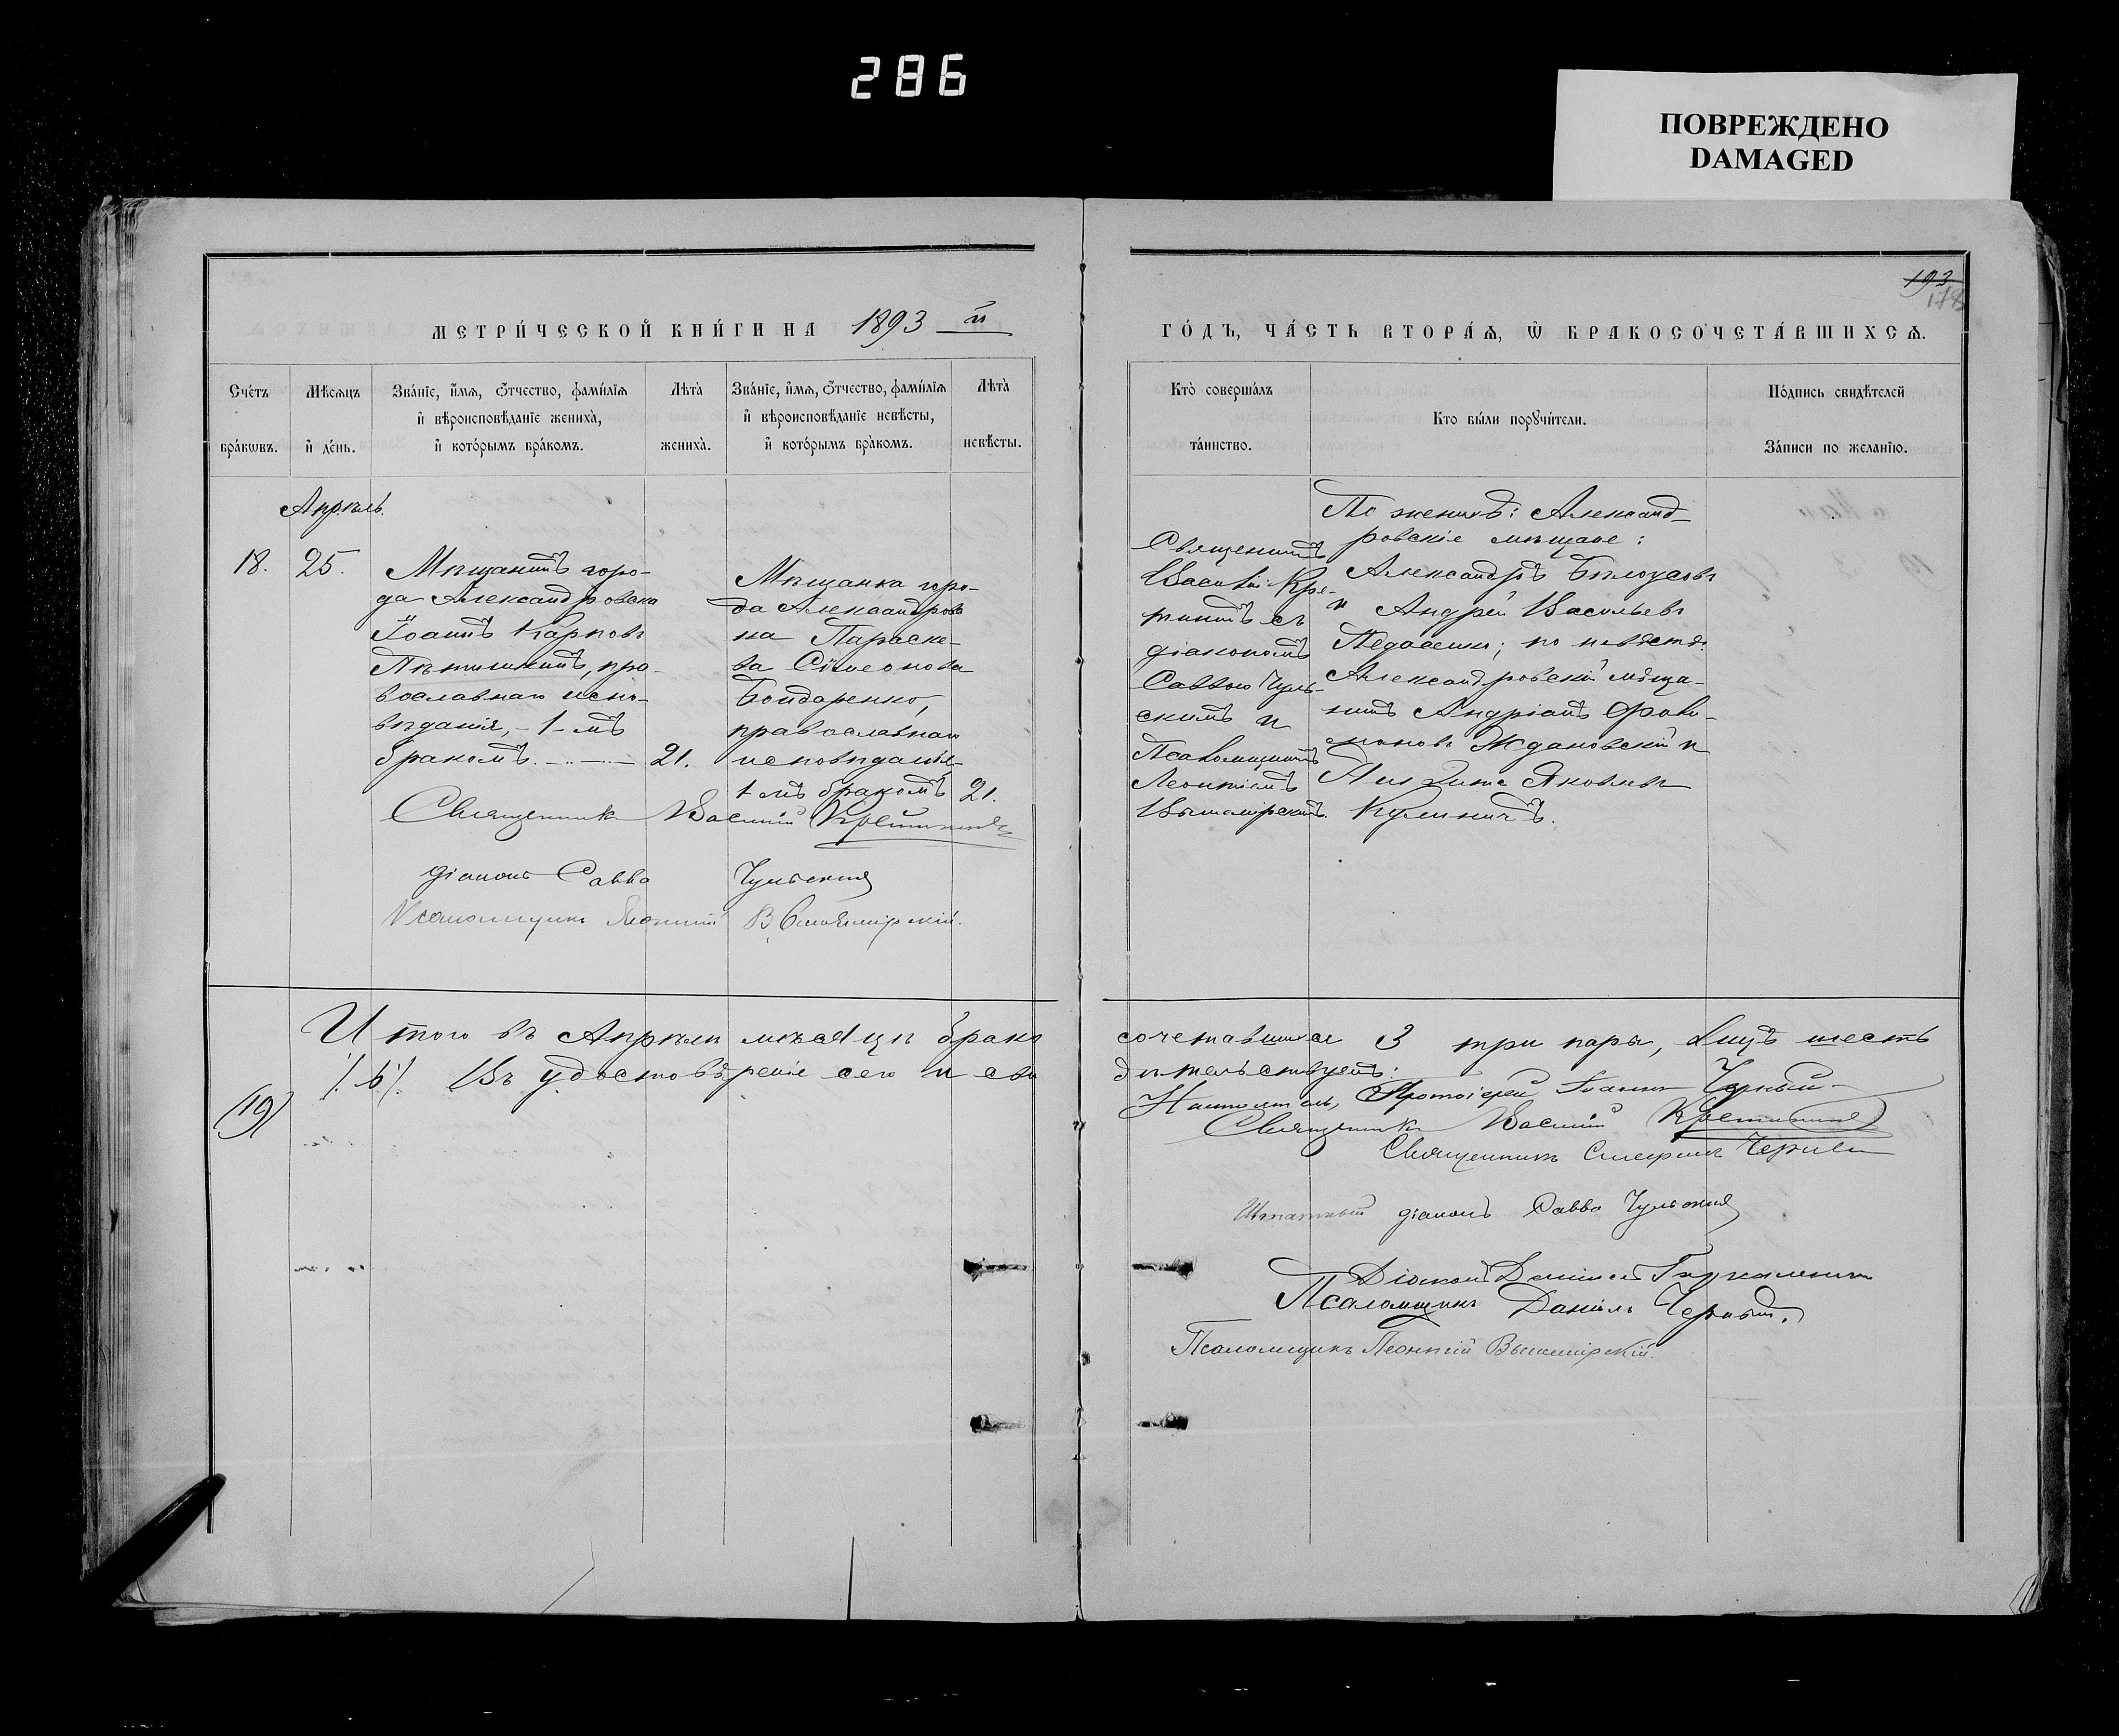 286
ПОВРЕЖДЕНО
DAMAGED
193
178
МЕТРИ́ЧЕСКОЙ КНИ́ГИ НА 1893 й
ГО́ДЪ, ЧА́СТЬ ВТОРА́Ѧ, Ѽ БРАКОСОЧЕТА́ВШИХСѦ.
Сче́тъ бра́кωвъ.
Мѣ́сѧцъ и҆ де́нь.
Зва́нїе, и҆́мѧ, ѻ҆́тчество, фами́лїѧ
и҆ вѣроисповѣ́данїе жениха̀,
и҆ кото́рымъ бра́комъ.
Лѣта̀ жениха̀.
Зва́нїе, и҆́мѧ, ѻ҆́тчество, фами́лїѧ
и҆ вѣроисповѣ́данїе невѣ́сты,
и҆ кото́рымъ бра́комъ.
Лѣта̀ невѣ́сты.
Кто̀ соверша́лъ та́инство.
Кто бы́ли порꙋчи́тели.
По́дпись свидѣ́телей
За́писи по жела́нїю.
Апрѣль.
18.
25.
Мѣщанинъ горо-
да Александровска
Іоаннъ Карповъ
православнаго испо-
вѣданія, - 1-мъ
бракомъ.
21.
Мѣщанка горо-
да Александровс
ка Параске-
ва Сѵмеонова
Бондаренко,
православнаго
исповѣданія
1-мъ бракомъ
21.
Священникъ
Василій Кре-
тининъ съ
діакономъ
Саввою Чуль-
скимъ и
Псаломщикомъ
Леонтіемъ
Вышемірскимъ.
По женихѣ: Александ-
ровскіе мѣщане:
Александръ Бѣлоусовъ
и Андрей Васильевъ
по невѣстѣ:
Александровскій мѣща-
нинъ Андріанъ
Ждановскій и
Никита Яковлевъ
Кулиничъ.
Священникъ Василій Кретининъ
діаконъ Савва Чульскій
Псаломщикъ Леонтій Вышемірскій.
Итого въ Апрѣлѣ мѣсяцѣ брако
сочетавшихся 3 три пары, лицъ шесть
/.6/. Въ удостовѣреніе сего и сви
дѣтельствуемъ:
(19)
Настоятель, Протоіерей Іоаннъ Чорный
Священникъ Василій Кретининъ
Священникъ
Штатный діаконъ Савва Чульскій
Діаконъ
Псаломщикъ Даніилъ Черный.
Псаломщикъ Леонтій Вышемірскій.